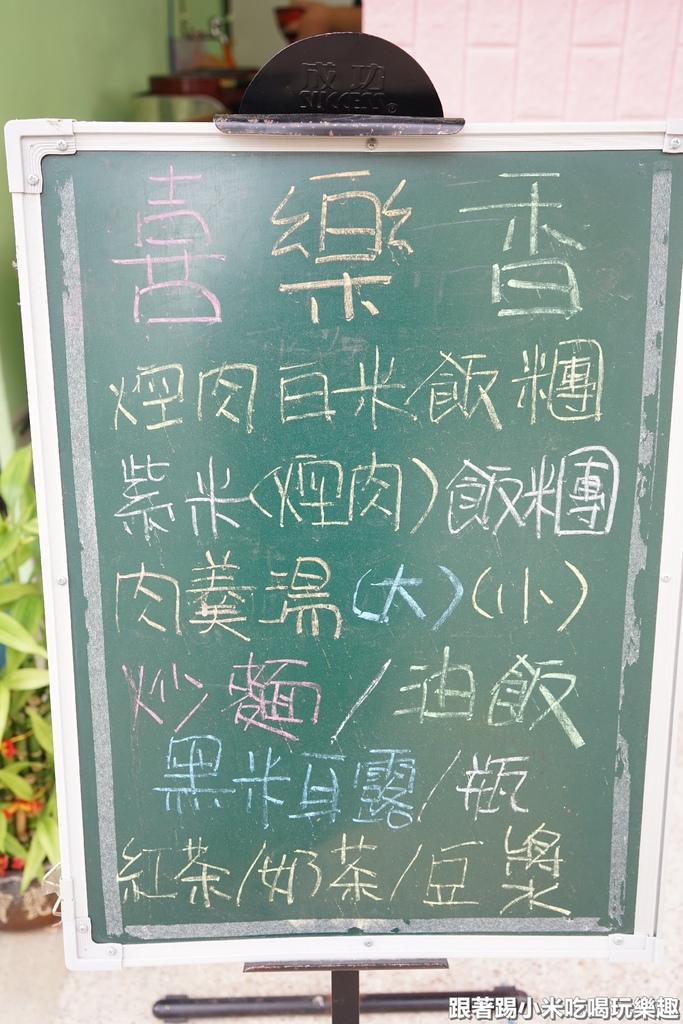 成功
SUCCESS®
喜樂香
焢肉白米飯糰
紫米(焢肉)飯糰
肉羹湯(大)(小)
炒麵/油飯
黑米耳露/瓶
紅茶/奶茶/豆漿
跟著踢小米吃喝玩樂趣